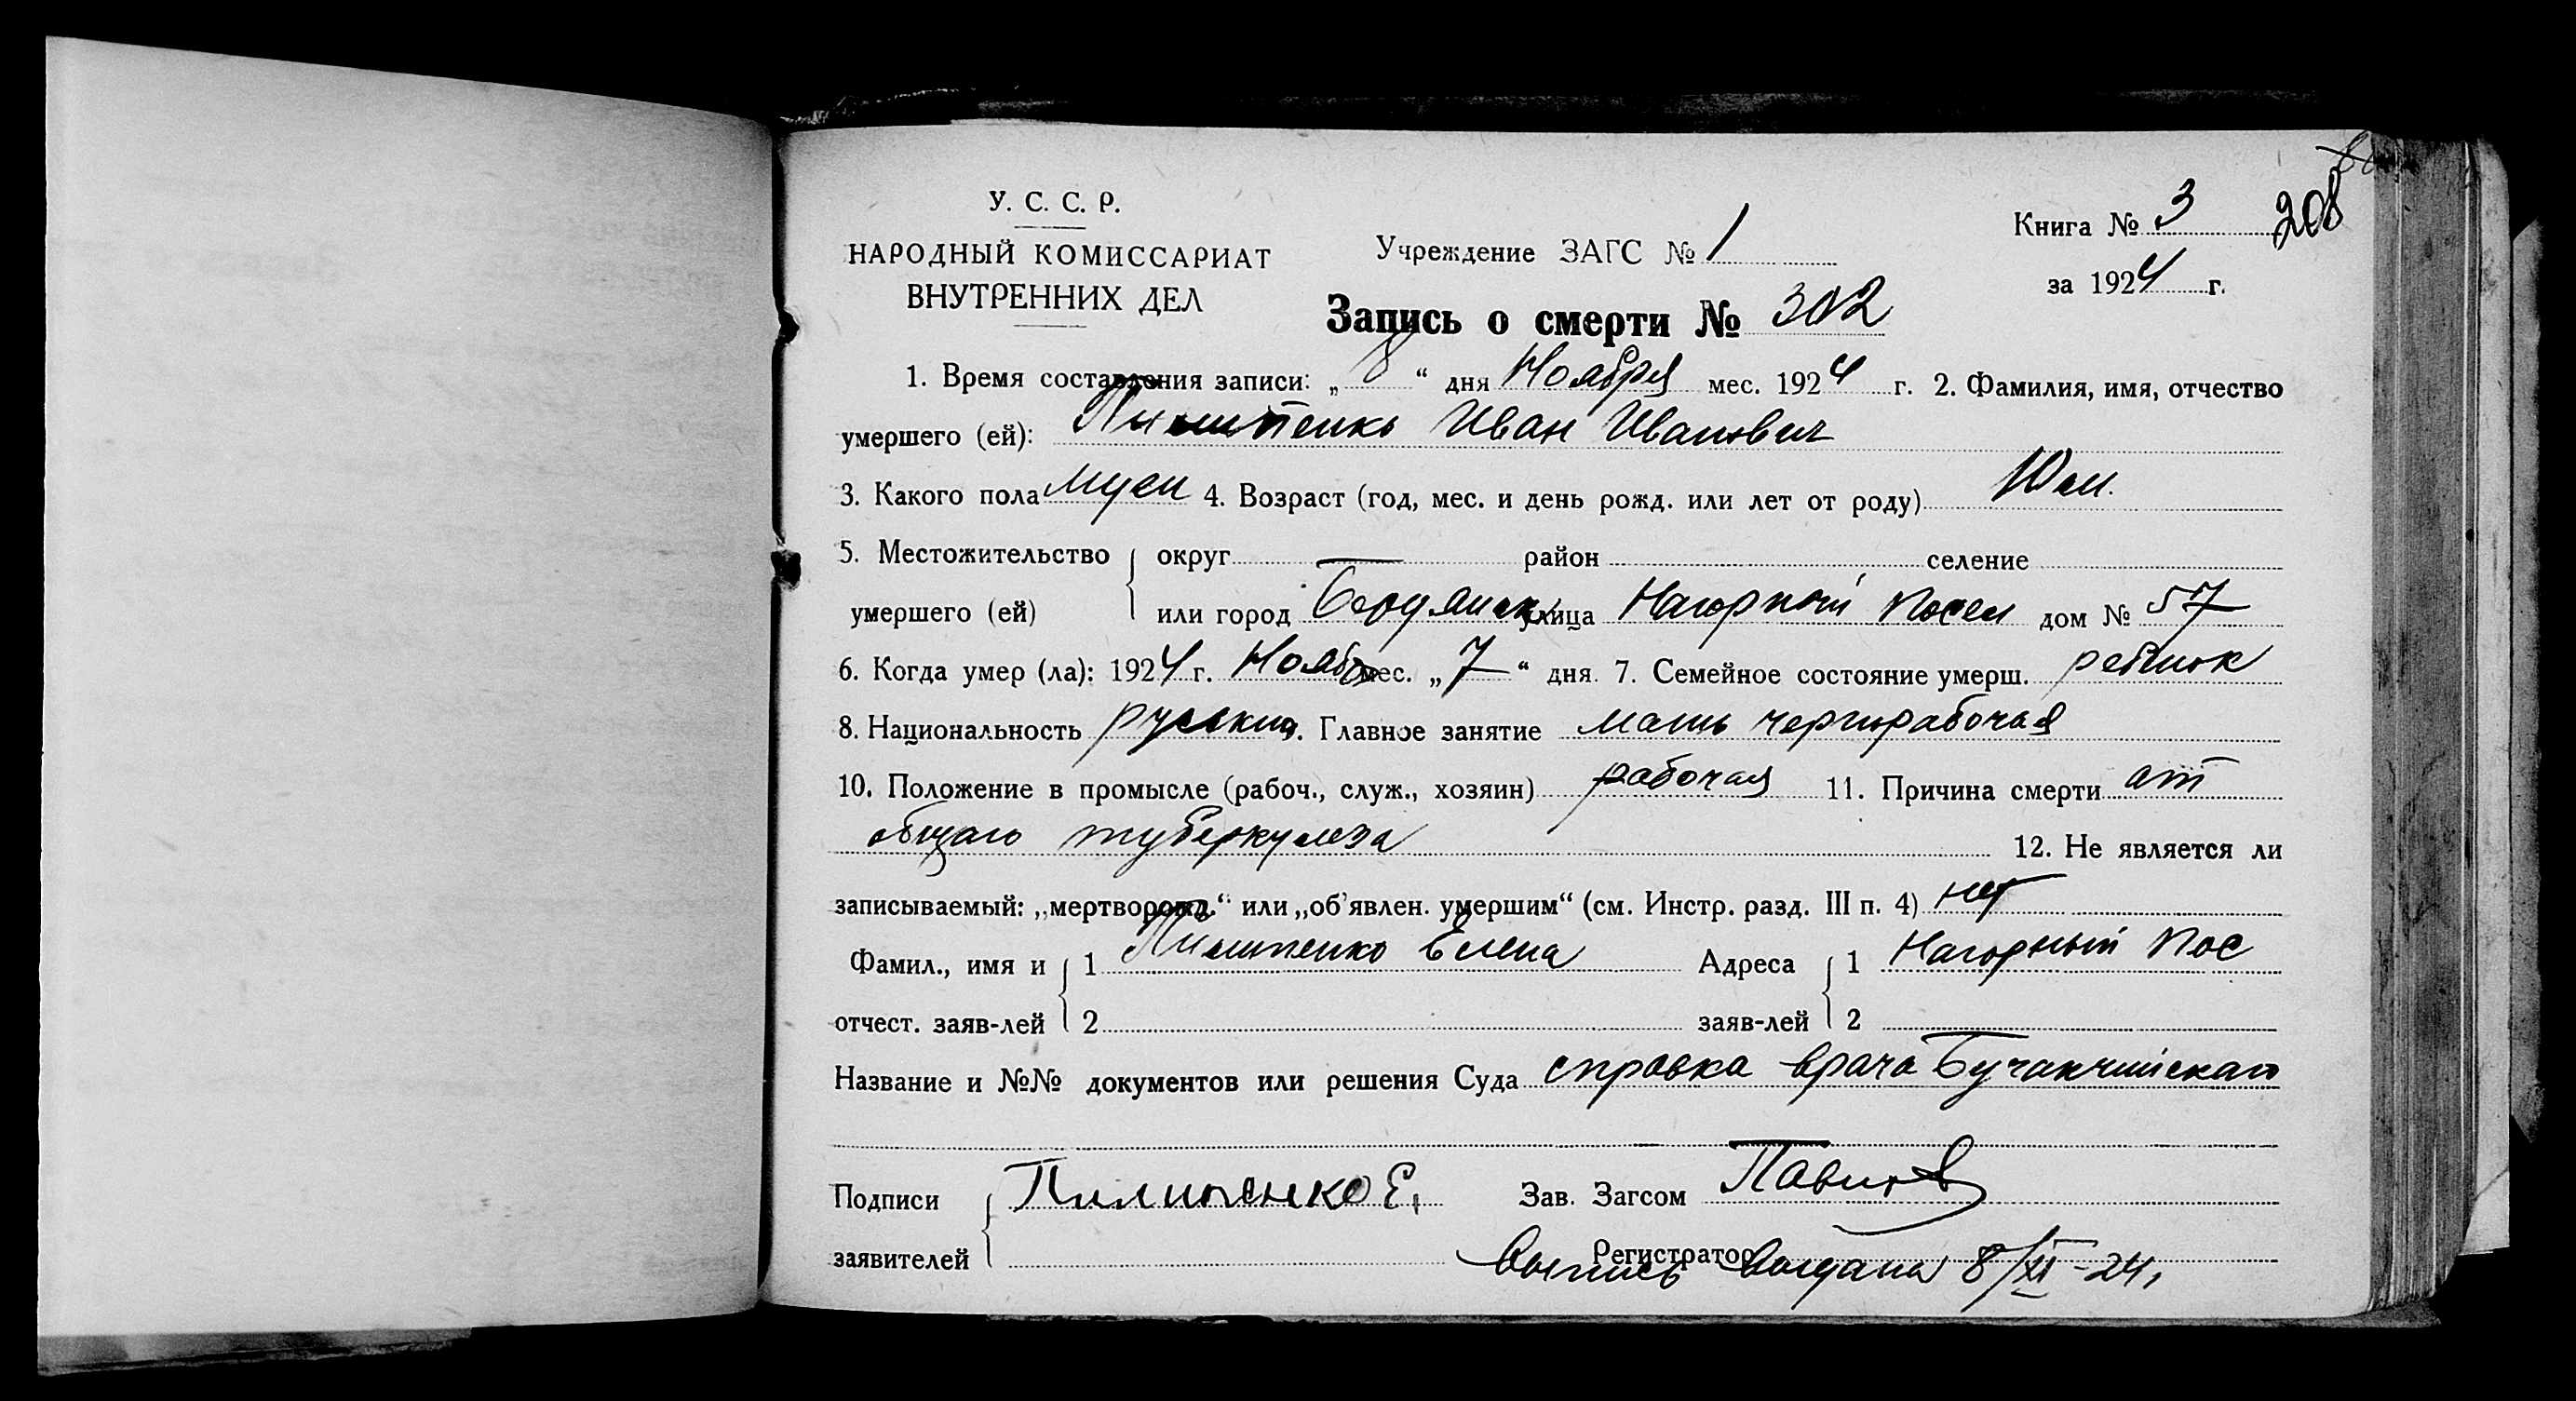 208
У. С. С. Р.
НАРОДНЫЙ КОМИССАРИАТ
ВНУТРЕННИХ ДЕЛ
Учреждение ЗАГС № 1
Книга № 3
за 1924 г.
Запись о смерти № 302
1. Время составления записи: „8“ дня Ноября мес. 1924 г. 2. Фамилия, имя, отчество
умершего (ей): Иван Иванович
3. Какого пола муж 4. Возраст (год, мес. и день рожд. или лет от роду) 10 м.
5. Местожительство умершего (ей) округ район селение
или город Бердянск улица Нагорный посел дом № 57
6. Когда умер (ла): 1924 г. Ноябр мес. „7“ дня. 7. Семейное состояние умерш. ребенок
8. Национальность русский 9. Главное занятие мать чернорабочая
10. Положение в промысле (рабоч., служ., хозяин) рабочая 11. Причина смерти от
общаго туберкулеза 12. Не является ли
записываемый: „мертворожд.“ или „об'явлен. умершим“ (см. Инстр. разд. III п. 4) нет
Фамил., имя и отчест. заяв-лей 1 Елена Адреса заяв-лей 1 Нагорный пос
2 2
Название и №№ документов или решения Суда справка врача
Подписи заявителей Пилипенко Е. Зав. Загсом
Регистратор
выпись выдана 8/XI-24.